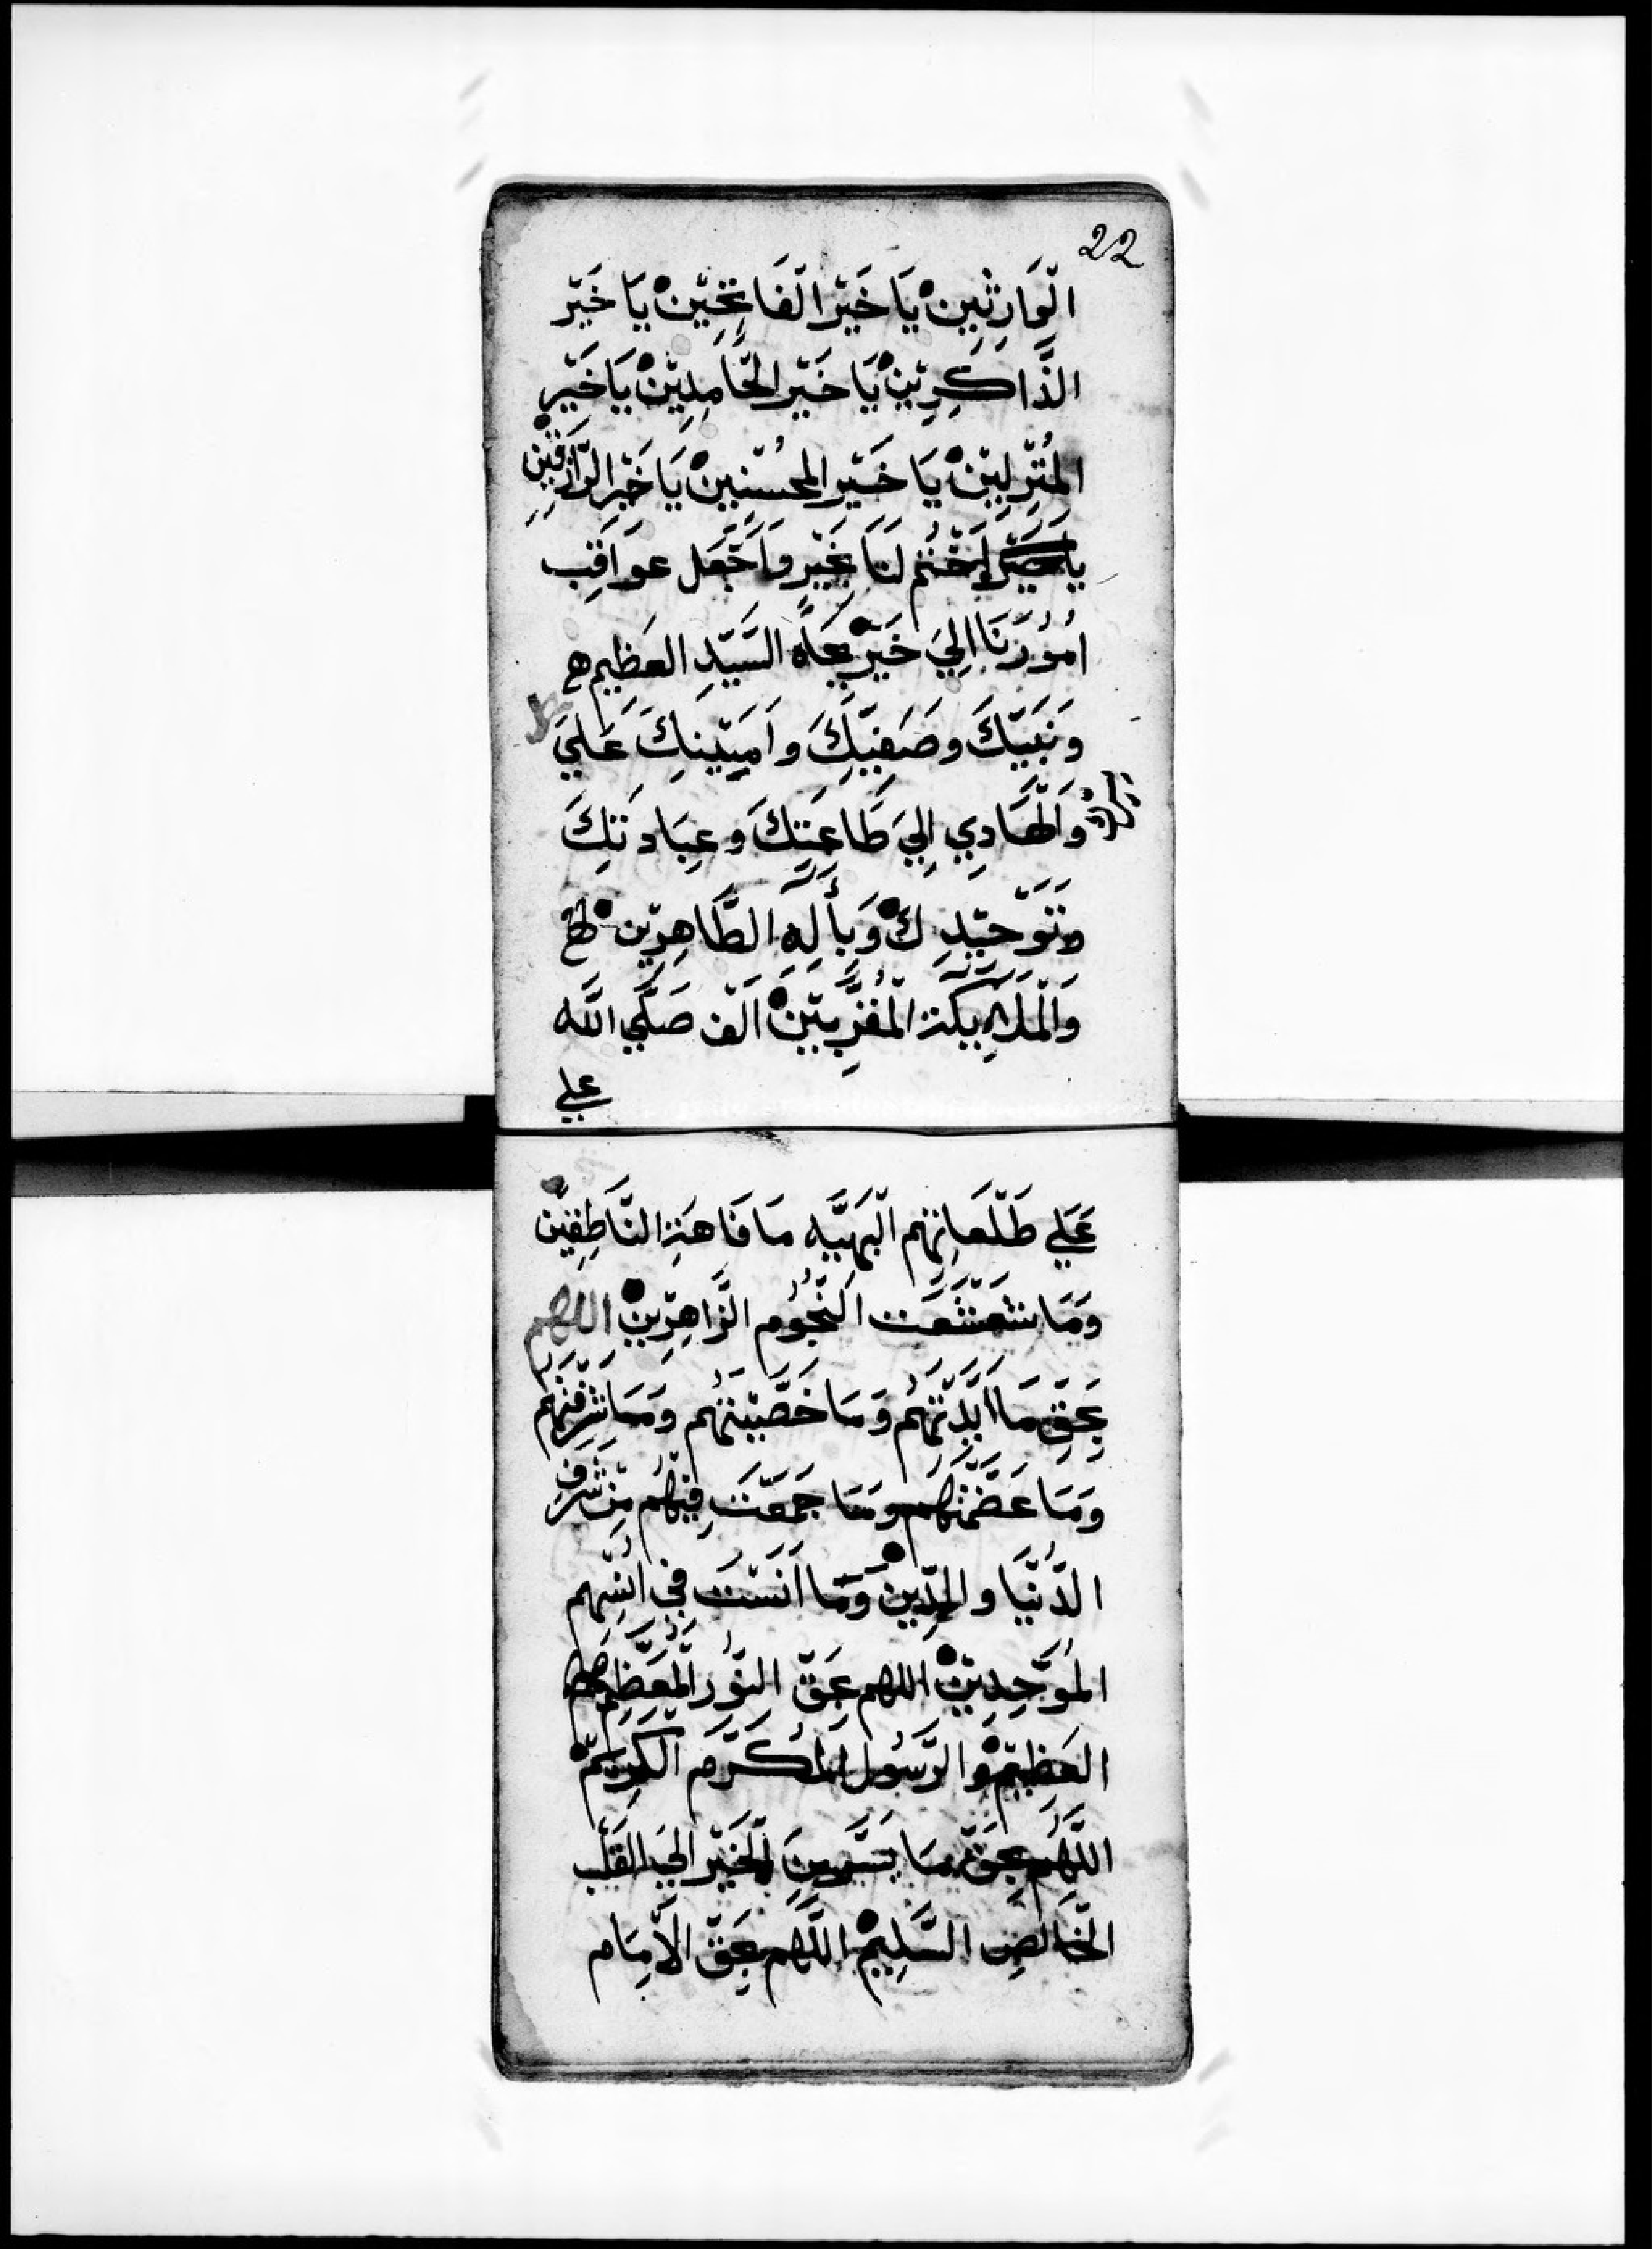 22
الْوَارِثِينْ يَا خَيْرَ الْفَاتِحِيْنْ يَا خَيْر
الذَّاكِرِيْنْ يَا خَيْر الحَامِدِيْنْ يَا خَيْر
المُنْزِلِيْنْ يَا خَيْر المُحْسُنِيْنْ يَا خَيْر الرَازِقِيْنْ
يا خَيْر إِخْتُم لَنَا بِخَيْر وَاَجْعَل عوَاقِب
اُمُوُرَنَا اِلَيَ خَيْر بِجَاَه السَّيّدِ العَظيم
وَنَبيّكَ وصَفِيّكَ وَاَمِيْنِكَ عَليَ
وَالْهَادِي اِلَيَ طَاعَتِكَ وعِبَادَتِكَ
وتَوْحِيْدِكْ وَبأَلِهِ الطَّاهِرِيْن
وَالْمَلَآئِيكَة الْمُقَرَّبِيْنْ اَلْف صَلَّي اللَّه
علي
عَلي طَلْعَاتِهم الْبَهيَّه مَا فَاهَة النَّاطِقِيْن
وَمَا شَعْشَعَت النُّجُوُم الزَّاهِرِيْنْ اللهم
بِحَقّ مَا اَيَّدْتَهُم وَمَا خَصَّيْتَهُم وَمَا شَرَّفْتَهُم
وَمَا عَظَّمْتَهُم ومَا جَمَعْتَ فِيْهُم مِن شَرَفِ
الدُّنْيَا والدِّيِنْ وَمَا اَنَسْتَ فِي اُنْسِهِم
المُوَحِّدِيْنْ اللهم بحَقّ النّوُر الْمُعَظّم
العَظِيْمْ والرَّسُوُل المُكَرَّم الْكَرِيْمْ
اللَّهُم بِحَقّ مَا يَسَّر مِنَ الخَيْر اليَ القَلْب
الخَالِص السَّلِيمْ اللَّهُم بِحَقّ الْاِمَام